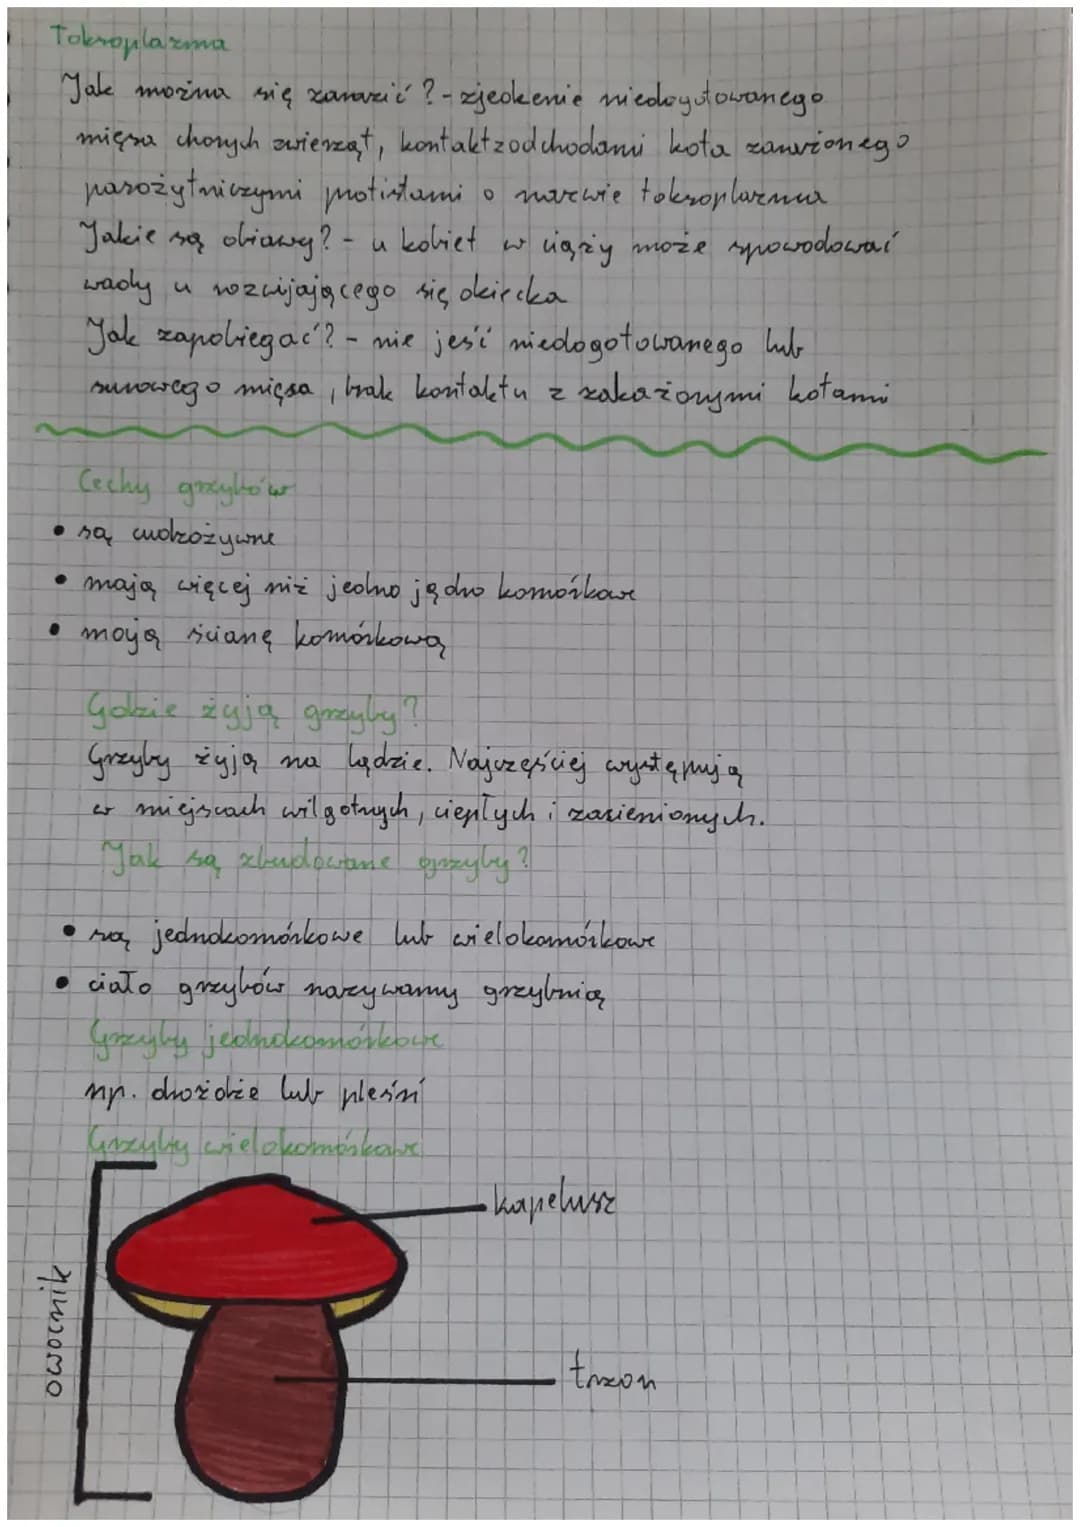 Toksoplazma
Jak można się zarazić? - zjedzenie niedogotowanego
mięsa chorych zwierząt, kontakt z odchodami kota zarażonego
pasożytniczymi protistami o nazwie toksoplazma
Jakie są obiawy? - u kobiet w ciąży może spowodować
wady u rozwijającego się dziecka
Jak zapobiegać? - nie jeść niedogotowanego lub
surowego mięsa, brak kontaktu z zakażonymi kotami
Cechy grzybów
• są cudzożywne
• mają więcej niż jedno jądro komórkowe
• mają ścianę komórkową
Gdzie żyją grzyby?
Grzyby żyją na lądzie. Najczęściej występują
w miejscach wilgotnych, ciepłych i zacienionych.
Jak są zbudowane grzyby?
• są jednokomórkowe lub wielokomórkowe
• ciało grzybów nazywamy grzybnią
Grzyby jednokomórkowe
np. drożdże lub pleśni
Grzyby wielokomórkowe
kapelusz
owocnik
trzon